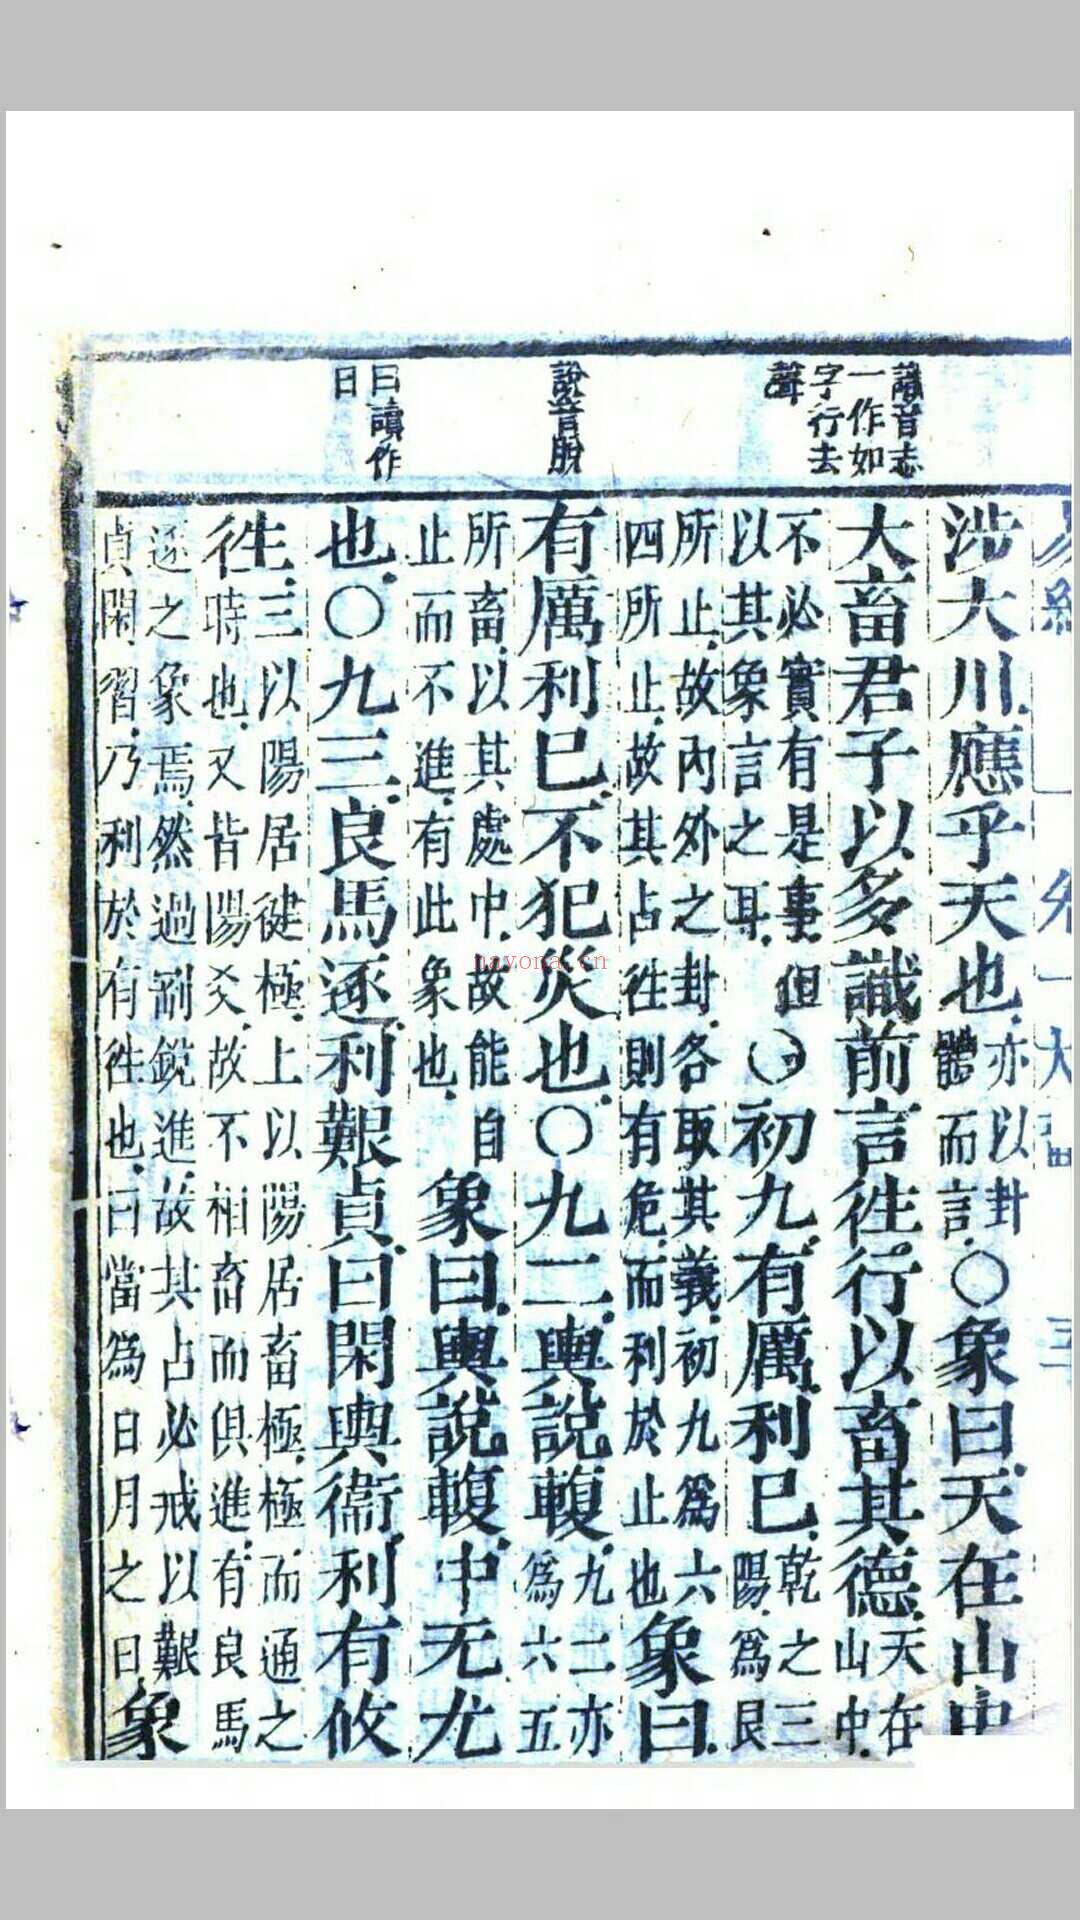 易經 卷一 大畜 三
識音志
一作如
字行去
聲
說音脫
曰讀作
日
涉大川應乎天也亦以卦體而言○象曰天在山中
大畜君子以多識前言往行以畜其德天在山中
不必實有是事但以其象言之耳○初九有厲利巳乾之三陽爲艮
所止故內外之卦各取其義初九爲六四所止故其占往則有危而利於止也象曰
有厲利巳不犯災也○九二輿說輹九二亦爲六五
所畜以其處中故能自止而不進有此象也象曰輿說輹中无尤
也○九三良馬逐利艱貞曰閑輿衛利有攸
往三以陽居健極上以陽居畜極極而通之時也又皆陽爻故不相畜而俱進有良馬
逐之象焉然過剛銳進故其占必戒以艱貞閑習乃利於有往也曰當爲日月之日象
nayona.cn